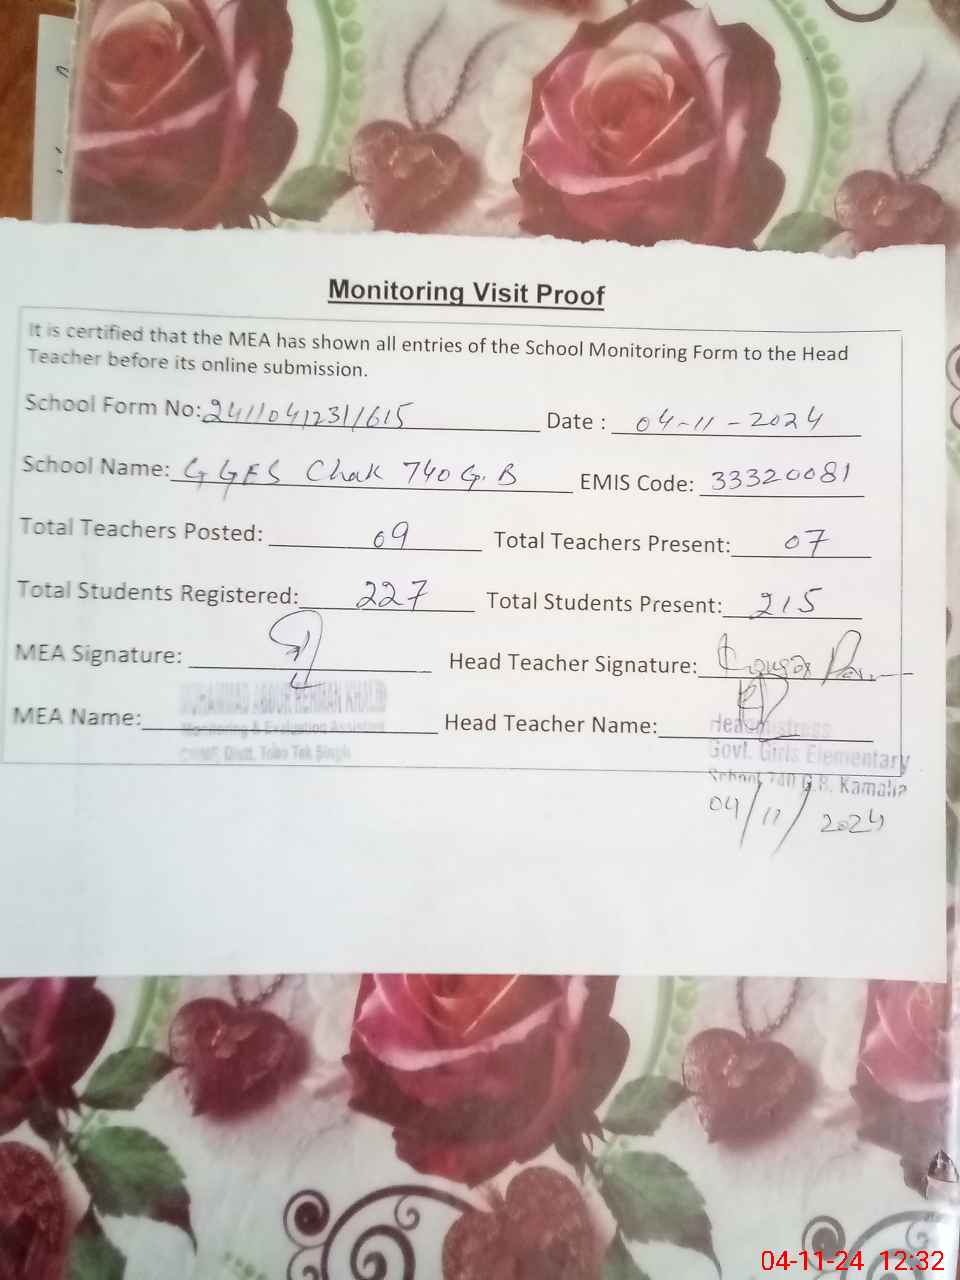 Monitoring Visit Proof
It is certified that the MEA has shown all entries of the School Monitoring Form to the Head
Teacher before its online submission.
School Form No: 24110412311615 Date : 04-11-2024
School Name: GGES Chak 740 G.B EMIS Code: 33320081
Total Teachers Posted: 09 Total Teachers Present: 07
Total Students Registered: 227 Total Students Present: 215
MEA Signature: Head Teacher Signature:
MUHAMMAD ABDUR REHMAN KHALID
MEA Name: Head Teacher Name:
Monitoring & Evaluation Assistant Headmistress
Distt. Toba Tek Singh Govt. Girls Elementary
School 740 G.B. Kamalia
04/11/2024
04-11-24 12:32